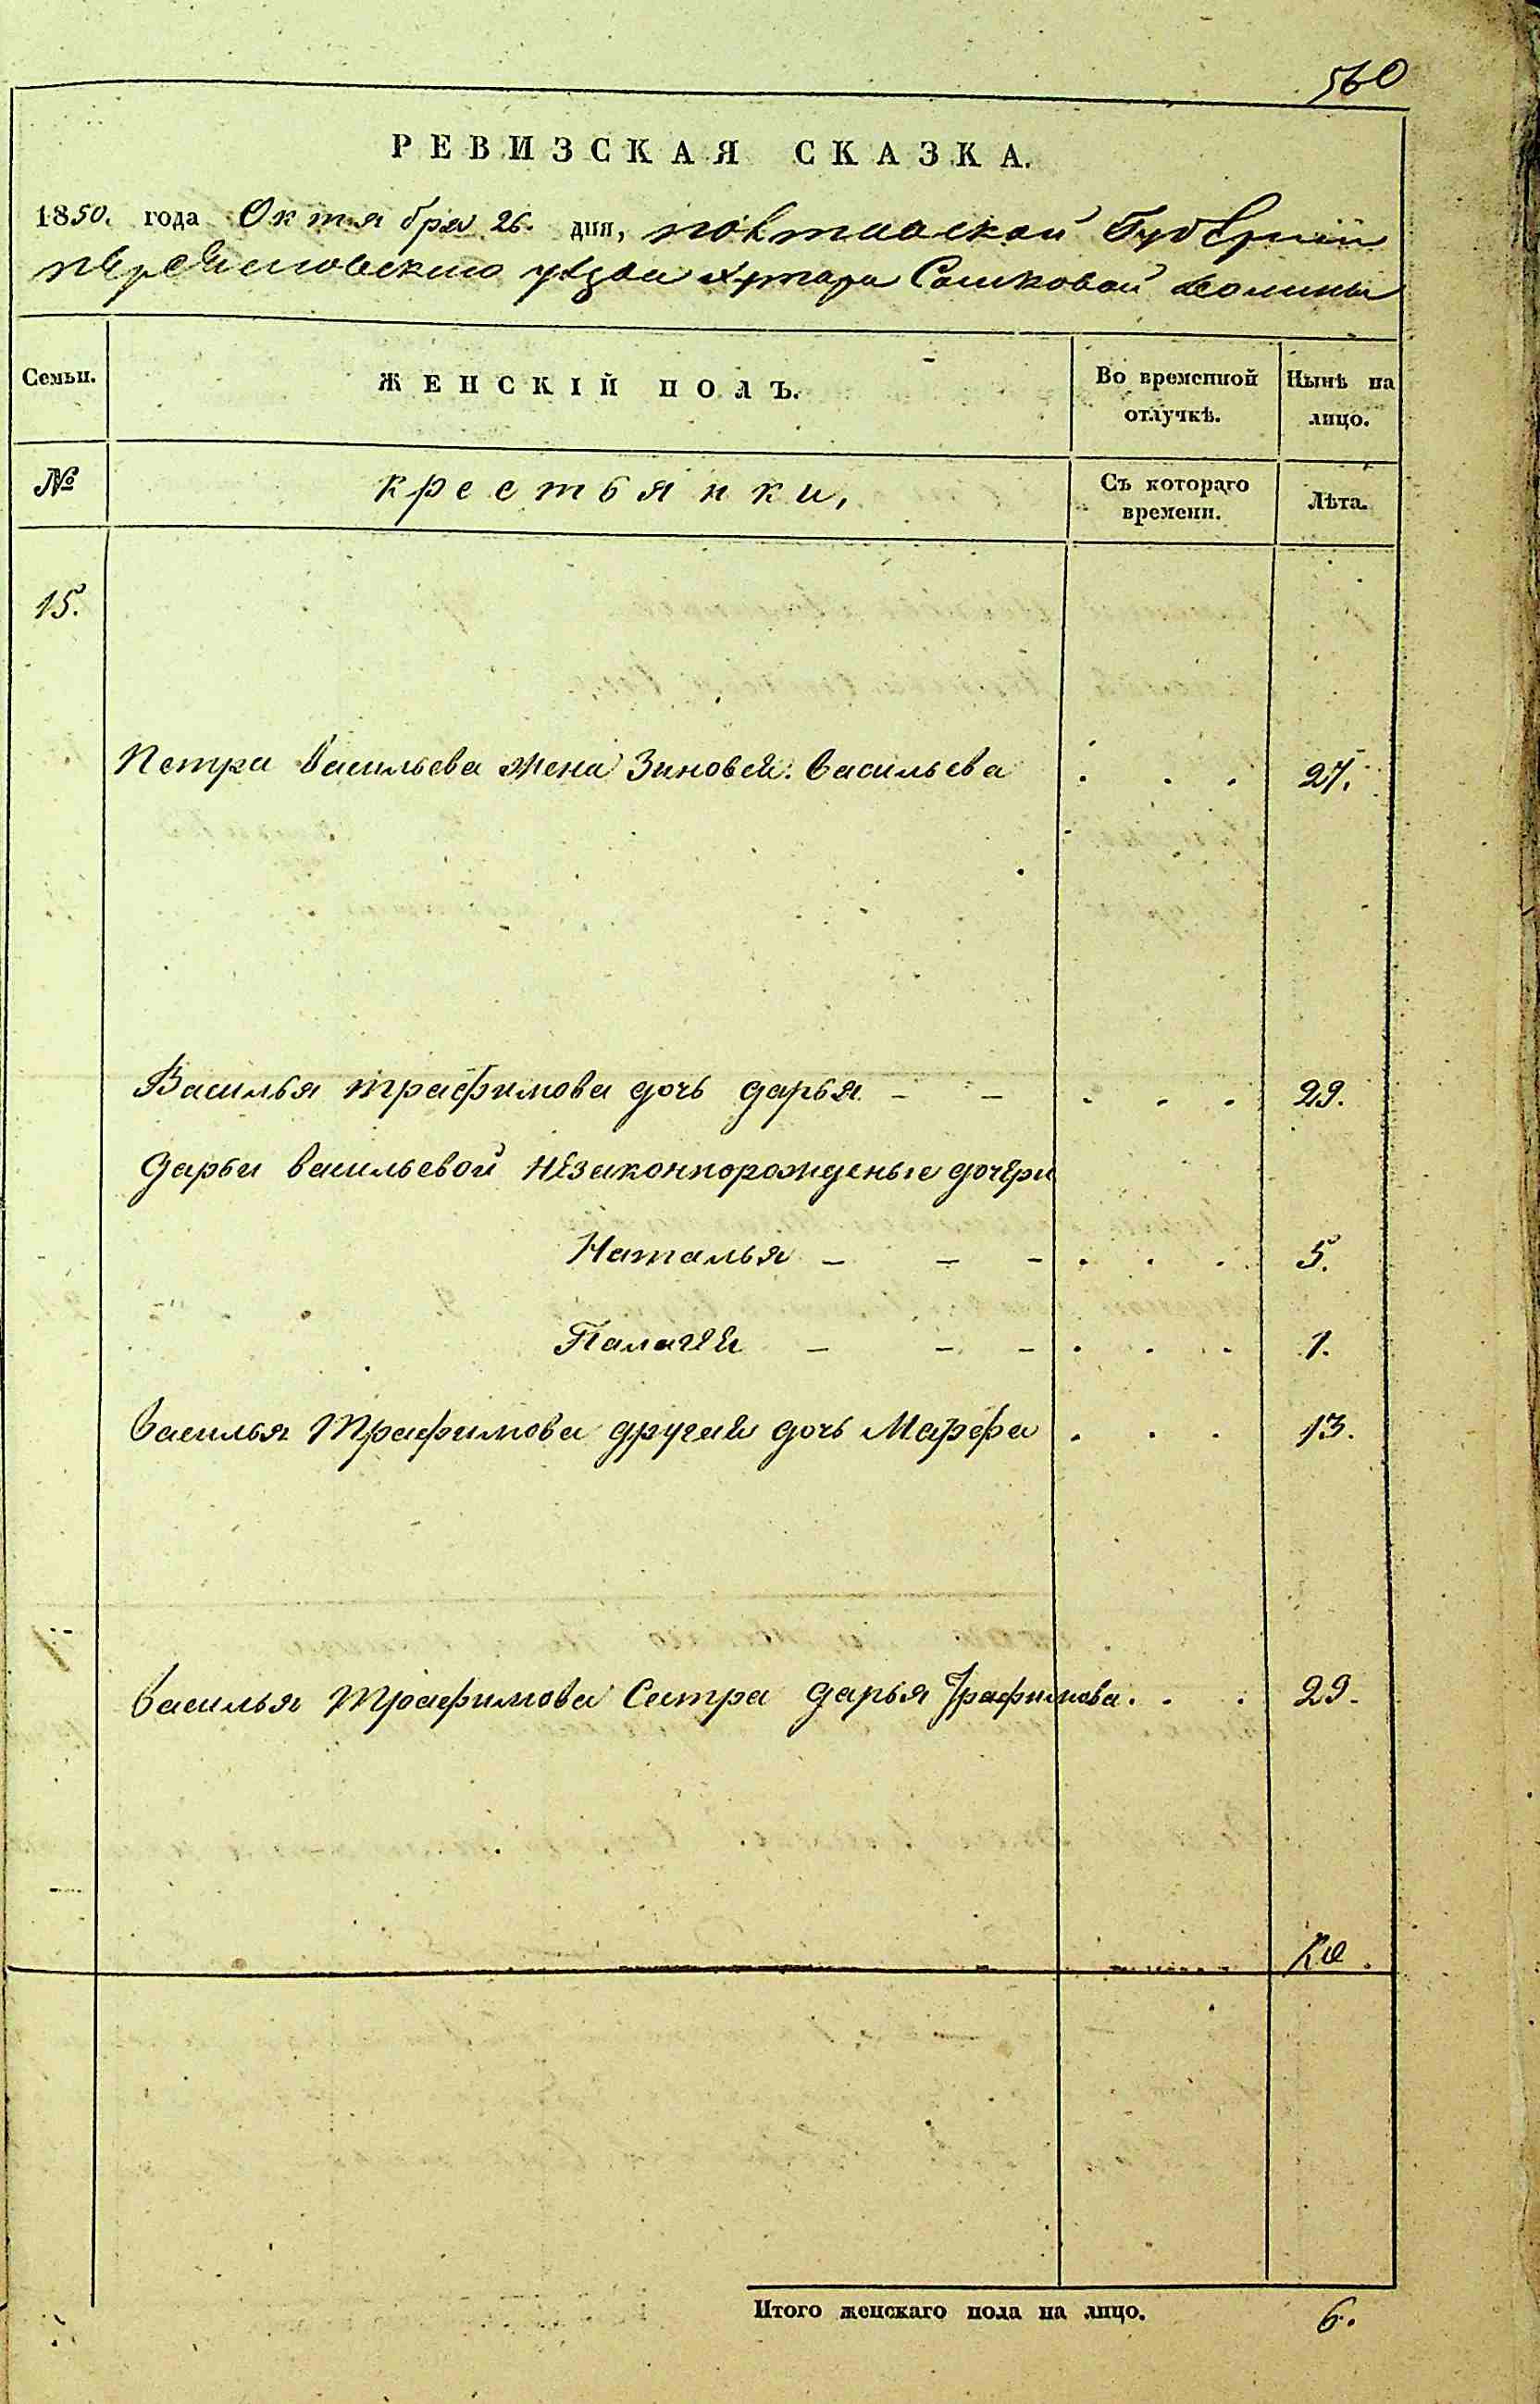 560
РЕВИЗСКАЯ СКАЗКА.
1850. года Октября 26. дня, полтавской Губернии
переяславскаго уезда хутора Сошковой долины
Семьи. ЖЕНСКІЙ ПОЛЪ. Во временной отлучкѣ. Нынѣ на лицо.
№ крестьянки, Съ котораго времени. Лѣта.
15.
Петра Васильева жена Зиновея Васильева . . . 27.
Василья трафимова дочь дарья - - . . . 29.
дарьи васильевой незаконнорожденые дочери
Наталья - - - . . . 5.
Палагея - - - . . . 1.
Василья Трафимова другая дочь Марфа . . . 13.
Василья Трафимова Сестра дарья Трафимова . . . 29.
Итого женскаго пола на лицо. 6.